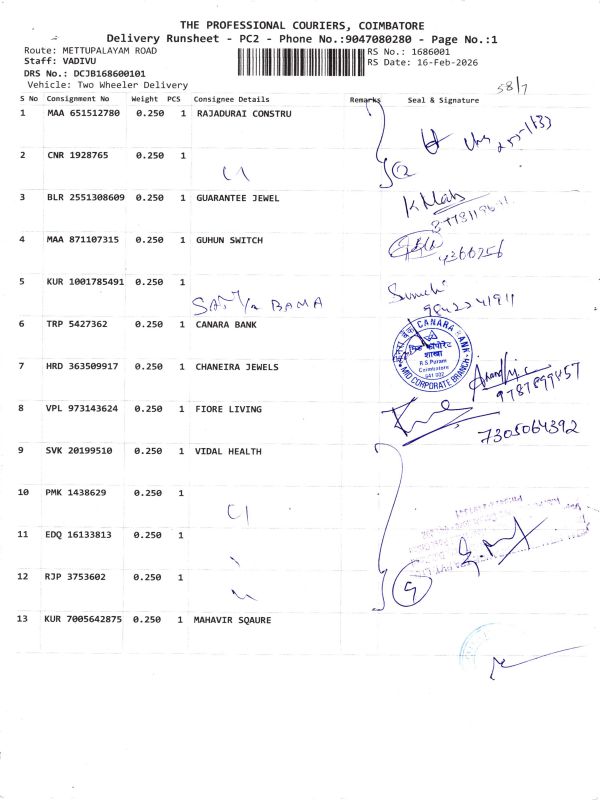 THE PROFESSIONAL COURIERS, COIMBATORE
Delivery Runsheet - PC2 - Phone No.:9047080280 - Page No.:1
Route: METTUPALAYAM ROAD
RS No.: 1686001
Staff: VADIVU
RS Date: 16-Feb-2026
DRS No.: DCJB168600101
Vehicle: Two Wheeler Delivery
58/7
S No Consignment No Weight PCS Consignee Details Remarks Seal & Signature
1 MAA 651512780 0.250 1 RAJADURAI CONSTRU
2 CNR 1928765 0.250 1
3 BLR 2551308609 0.250 1 GUARANTEE JEWEL
4 MAA 871107315 0.250 1 GUHUN SWITCH
5 KUR 1001785491 0.250 1
BAMA
9842341911
6 TRP 5427362 0.250 1 CANARA BANK
CANARA BANK
शाखा
R S Puram
Coimbatore
641 002
MID CORPORATE BRANCH
7 HRD 363509917 0.250 1 CHANEIRA JEWELS
9787899457
8 VPL 973143624 0.250 1 FIORE LIVING
7305064392
9 SVK 20199510 0.250 1 VIDAL HEALTH
10 PMK 1438629 0.250 1
11 EDQ 16133813 0.250 1
12 RJP 3753602 0.250 1
13 KUR 7005642875 0.250 1 MAHAVIR SQAURE